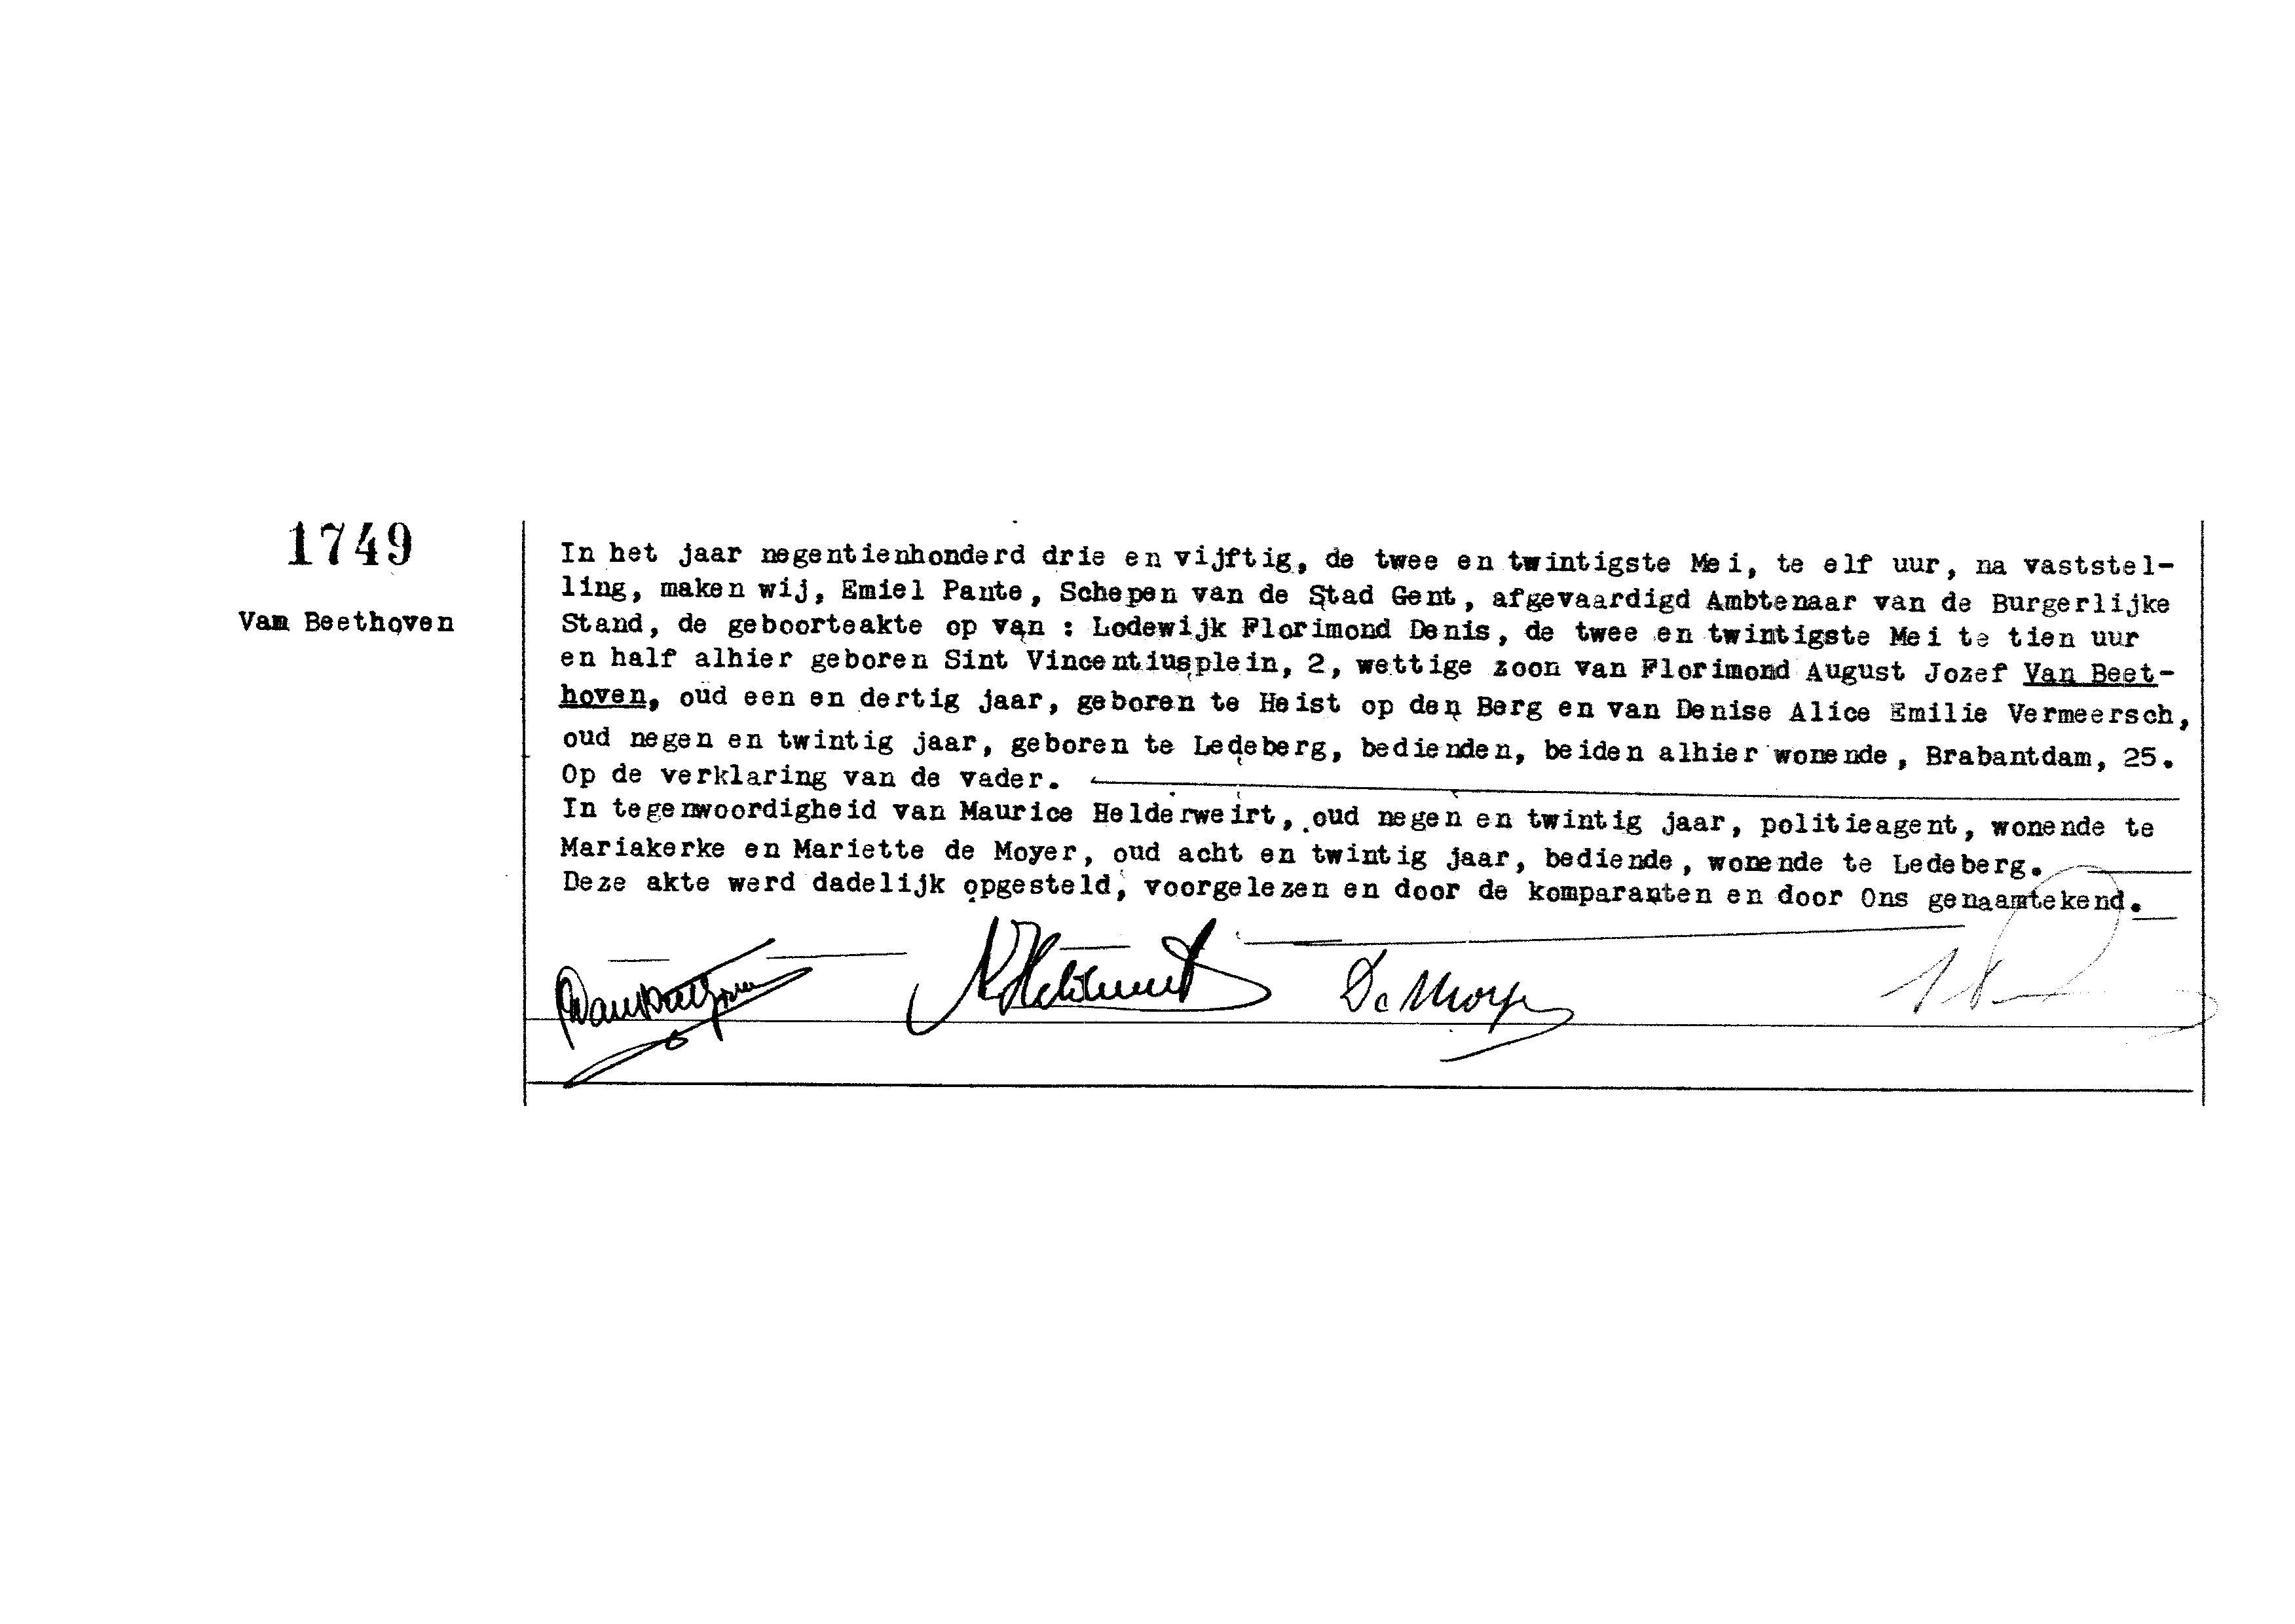 1749
Van Beethoven
In het jaar negentienhonderd drie en vijftig, de twee en twintigste Mei, te elf uur, na vaststel-
ling, maken wij, Emiel Pante, Schepen van de Stad Gent, afgevaardigd Ambtenaar van de Burgerlijke
Stand, de geboorteakte op van : Lodewijk Florimond Denis, de twee en twintigste Mei te tien uur
en half alhier geboren Sint Vincentiusplein, 2, wettige zoon van Florimond August Jozef Van Beet-
hoven, oud een en dertig jaar, geboren te Heist op den Berg en van Denise Alice Emilie Vermeersch,
oud negen en twintig jaar, geboren te Ledeberg, bedienden, beiden alhier wonende, Brabantdam, 25.
Op de verklaring van de vader.
In tegenwoordigheid van Maurice Helderweirt, oud negen en twintig jaar, politieagent, wonende te
Mariakerke en Mariette de Moyer, oud acht en twintig jaar, bediende, wonende te Ledeberg.
Deze akte werd dadelijk opgesteld, voorgelezen en door de komparanten en door Ons genaamtekend.
De Moyer